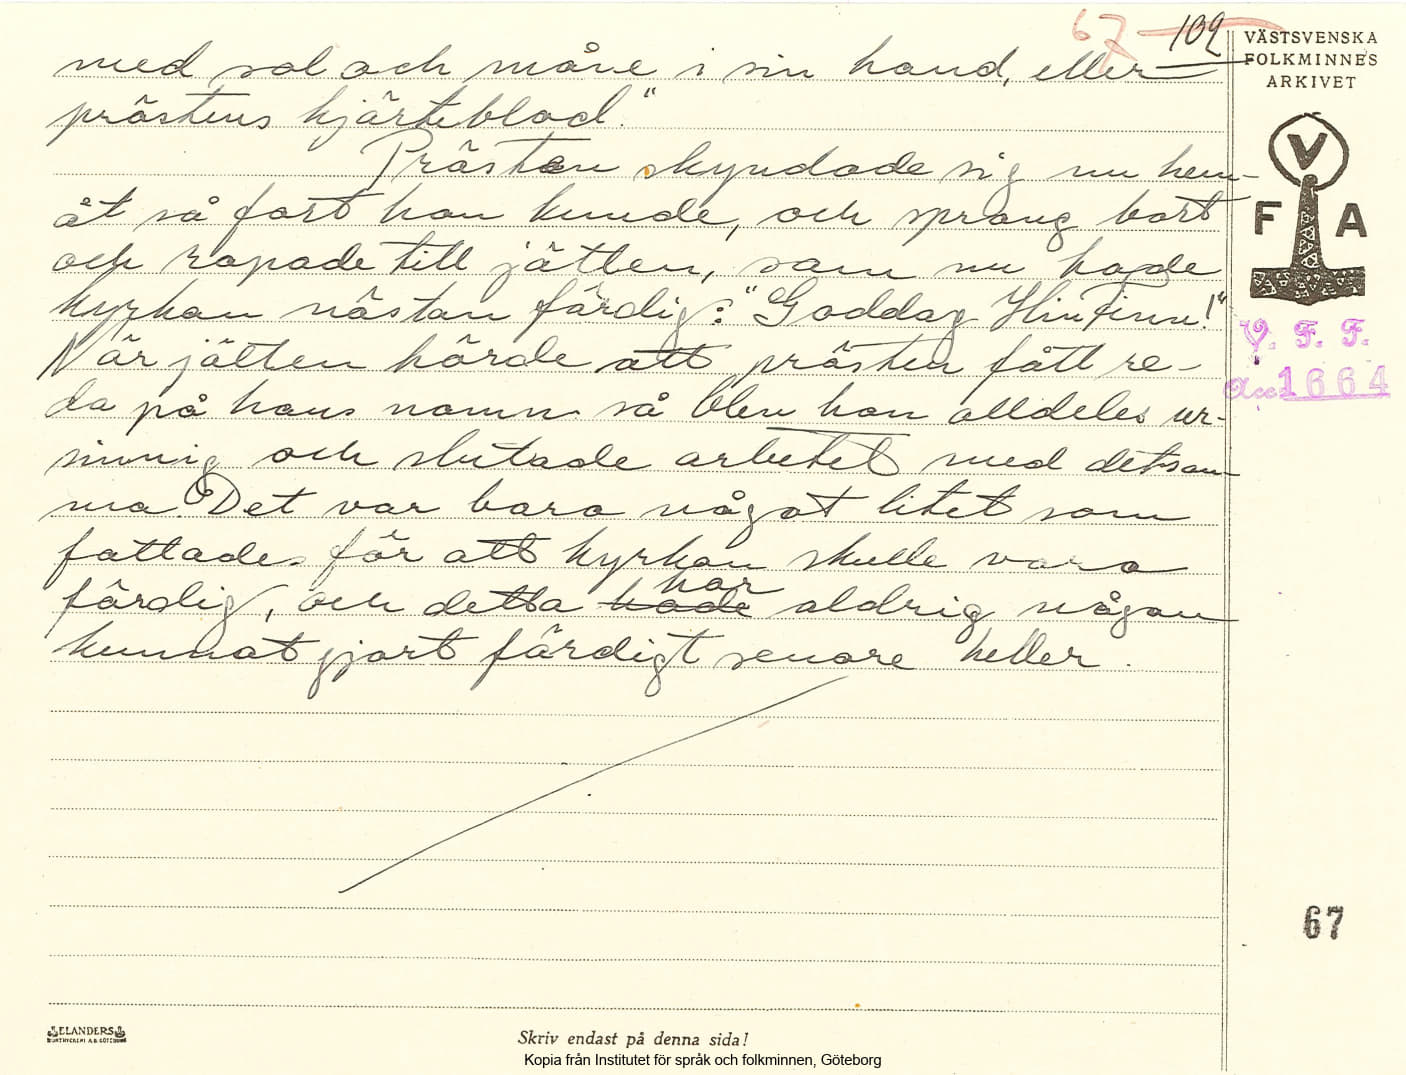 67 109
VÄSTSVENSKA
FOLKMINNES
ARKIVET
V
F A
V. F. F.
Acc 1664
med sol och måne i sin hand, eller
prästens hjärteblod."
Prästen skyndade sig nu hem-
åt så fort han kunde, och sprang bort
och ropade till jätten, som nu hade
kyrkan nästan färdig: "Goddag Hin Finn!"
När jätten hörde att prästen fått re-
da på hans namn så blev han alldeles ur-
sinnig och slutade arbetet med detsam-
ma. Det var bara något litet som
fattades för att kyrkan skulle vara
färdig, och detta hade har aldrig någon
kunnat gjort färdigt senare heller.
67
ELANDERS
BOKTRYCKERI A.B. GÖTEBORG
Skriv endast på denna sida!
Kopia från Institutet för språk och folkminnen, Göteborg